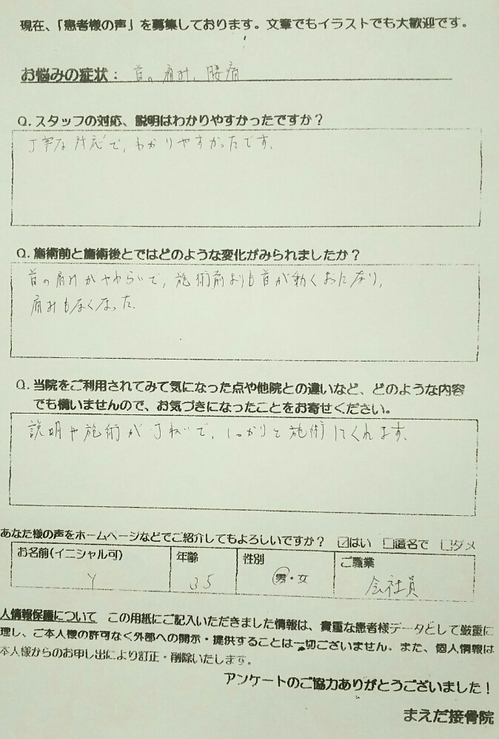 現在、「患者様の声」を募集しております。文章でもイラストでも大歓迎です。
お悩みの症状：首の痛み、腰痛
Q.スタッフの対応、説明はわかりやすかったですか？
丁寧な対応で、わかりやすかったです。
Q.施術前と施術後とではどのような変化がみられましたか？
首の痛みがやわらいで、施術前よりも首が動くおになり、
痛みもなくなった。
Q.当院をご利用されてみて気になった点や他院との違いなど、どのような内容
でも構いませんので、お気づきになったことをお寄せください。
説明や施術が丁ねいで、しっかりと施術してくれます。
あなた様の声をホームページなどでご紹介してもよろしいですか？ ☑はい □匿名で □ダメ
お名前(イニシャル可) 年齢 性別 ご職業
Y 35 男・女 会社員
人情報保護について この用紙にご記入いただきました情報は、貴重な患者様データとして厳重に
理し、ご本人様の許可なく外部への開示・提供することは一切ございません。また、個人情報は
本人様からのお申し出により訂正・削除いたします。
アンケートのご協力ありがとうございました！
まえだ接骨院